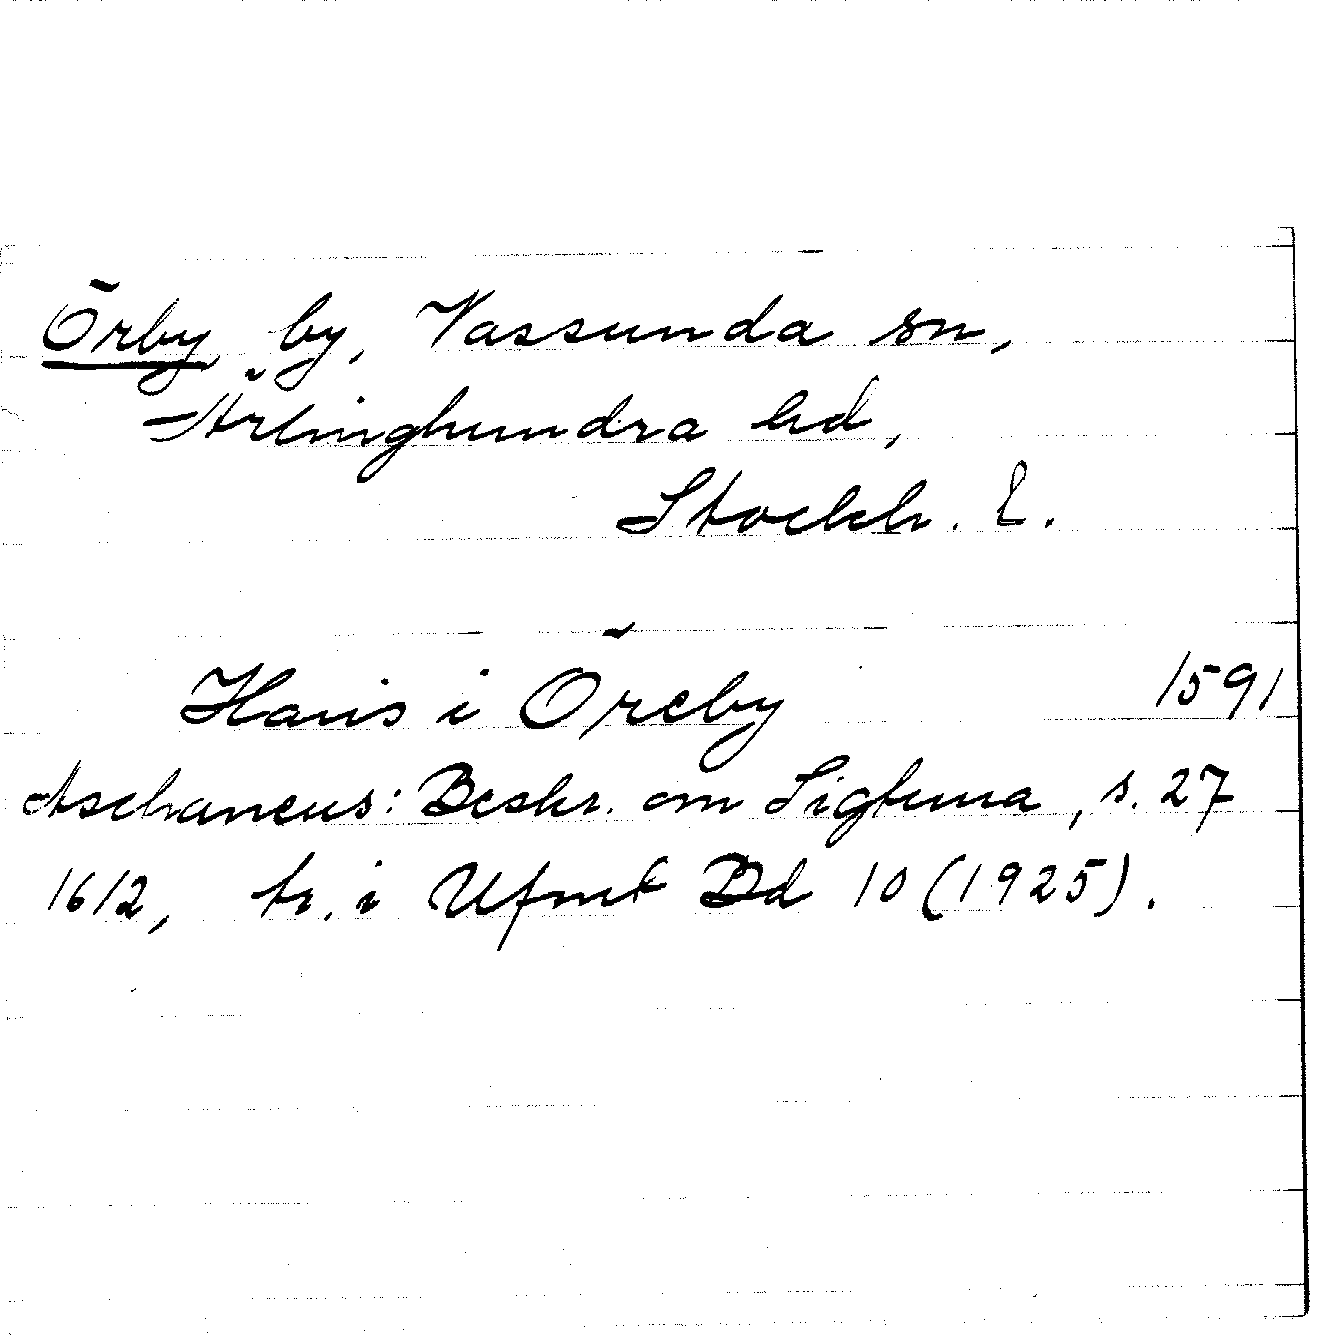 Örby by, Vassunda sn,
Ärlinghundra hd,
Stockh. l.
Hans i Öreby 1591
Aschaneus: Beskr. om Sigtuna, s. 27
1612, tr. i Ufmt Bd 10 (1925).